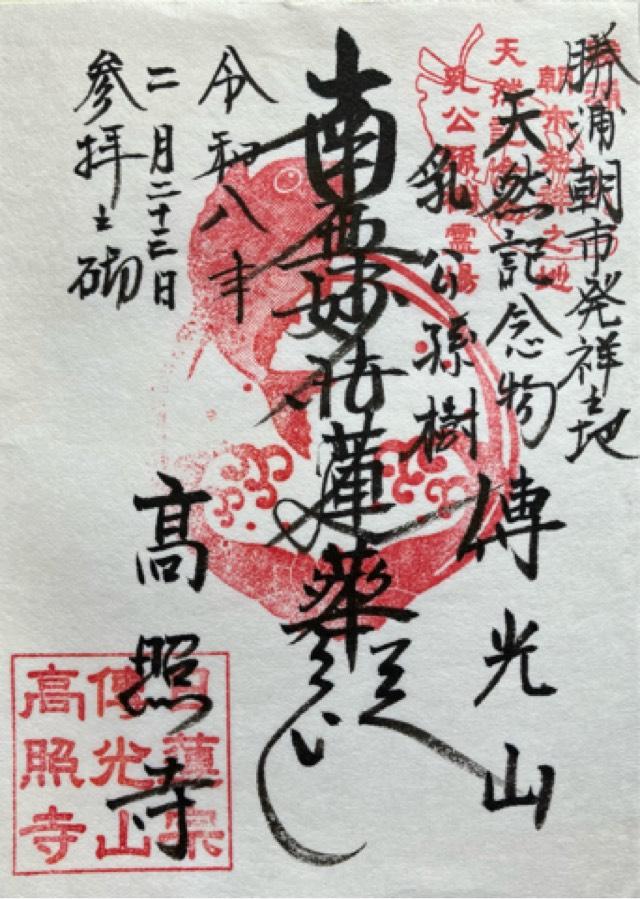 勝浦朝市発祥之地
天然記念物
乳公孫樹
傳光山
南無妙法蓮華経
高照寺
令和八年
二月二十三日
参拝之砌
朝市発祥之地
天然記念物
乳公孫樹霊場
日蓮宗
傳光山
高照寺